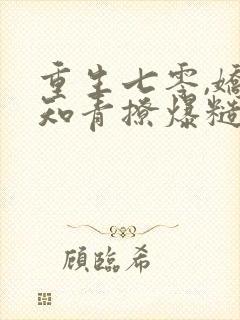 重生七零,嬌
知青撩爆糙
顧臨希